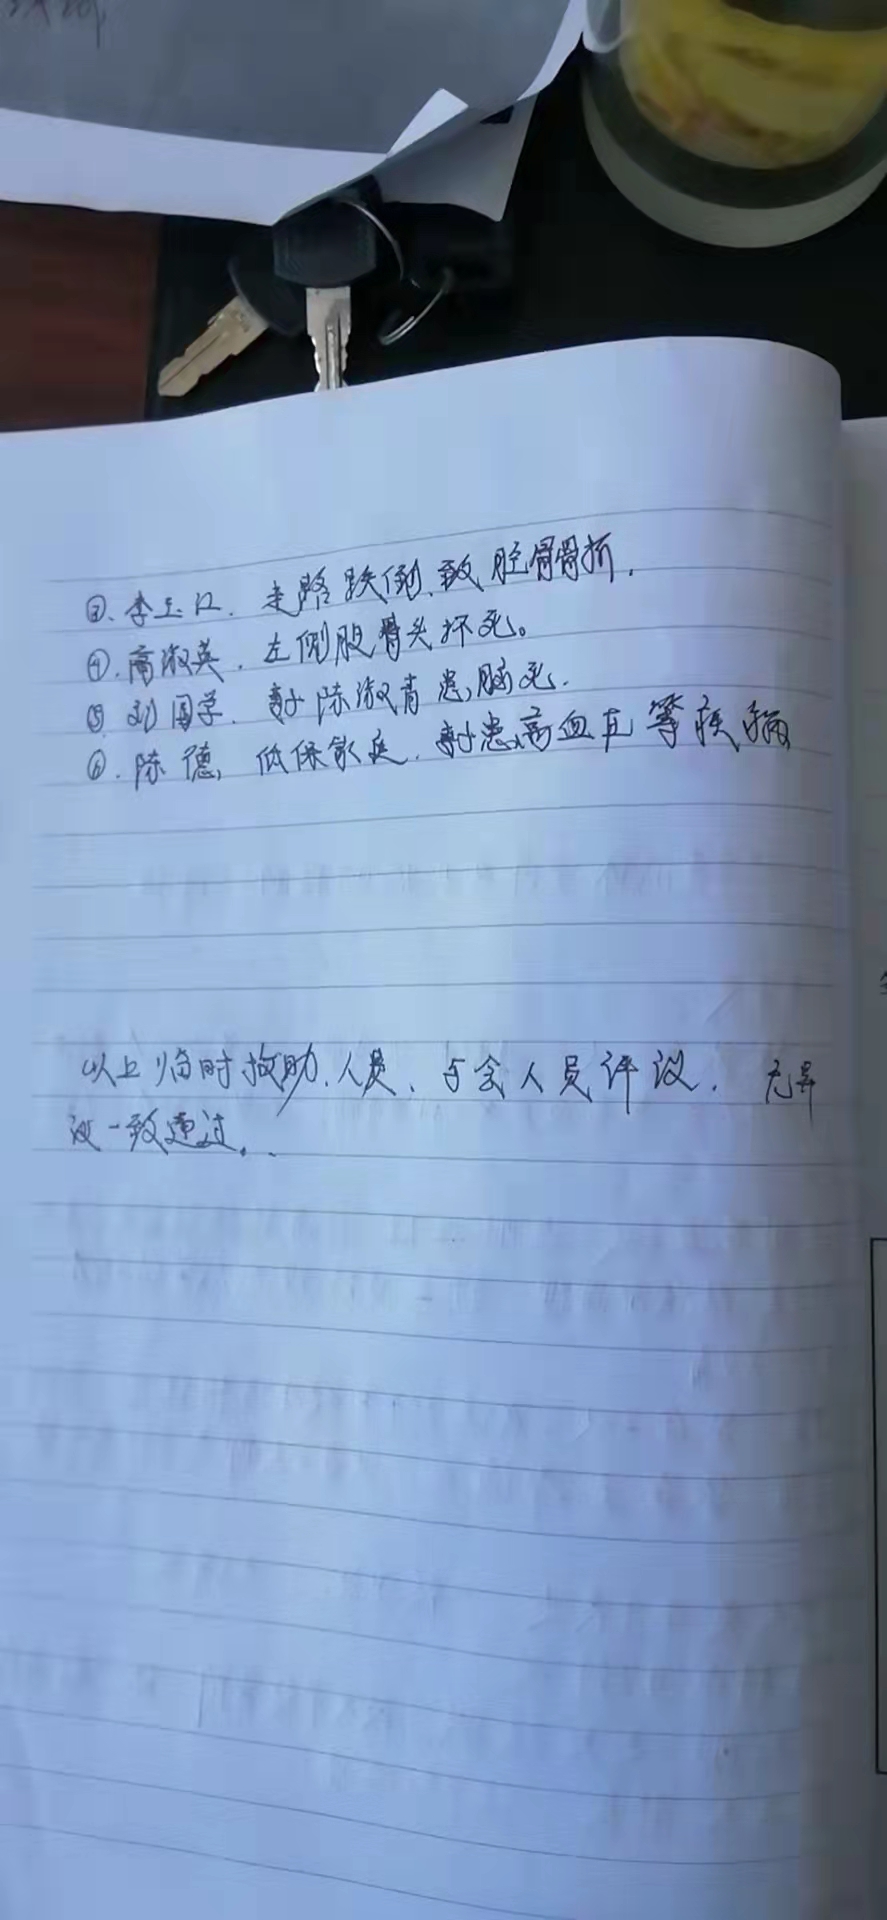 ③、李玉江．走路跌倒、致胫骨骨折．
④．高淑英．左侧股骨头坏死。
⑤ 刘国学．妻子陈淑青患脑死．
⑥．陈德，低保家庭．妻子患高血压等疾病
以上临时救助、人员、与会人员评议．无异
议一致通过．．